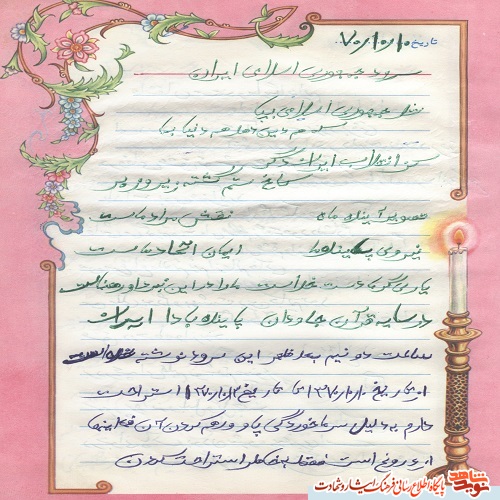 تاریخ ۷۰/۱۰/۱۰
سرود جمهوری اسلامی ایران
شد جمهوری اسلامی بپا
که هم دین دهد هم دنیا بما
از انقلاب ایران دگر
کاخ ستم گشته زیر و زبر
تصویر آینده ما نقش مراد ماست
نیروی پاینده ما ایمان اتحاد ماست
یاری گر ما دست خداست ما را در این نبرد او رهنماست
در سایه قرآن جاودان پاینده بادا ایران
ساعت دو نیم بعد ظهر این سرود نوشته شده است
از تاریخ ۱۳۷۰/۱۰/۱۰ تا تاریخ ۱۳۷۰/۱۰/۱۲ استراحت
دارم به دلیل سرماخوردگی پا و ورم کردن آن
از دروغ است فقط بخاطر استراحت کردن
نوید شاهد
پایگاه اطلاع رسانی فرهنگ ایثار و شهادت